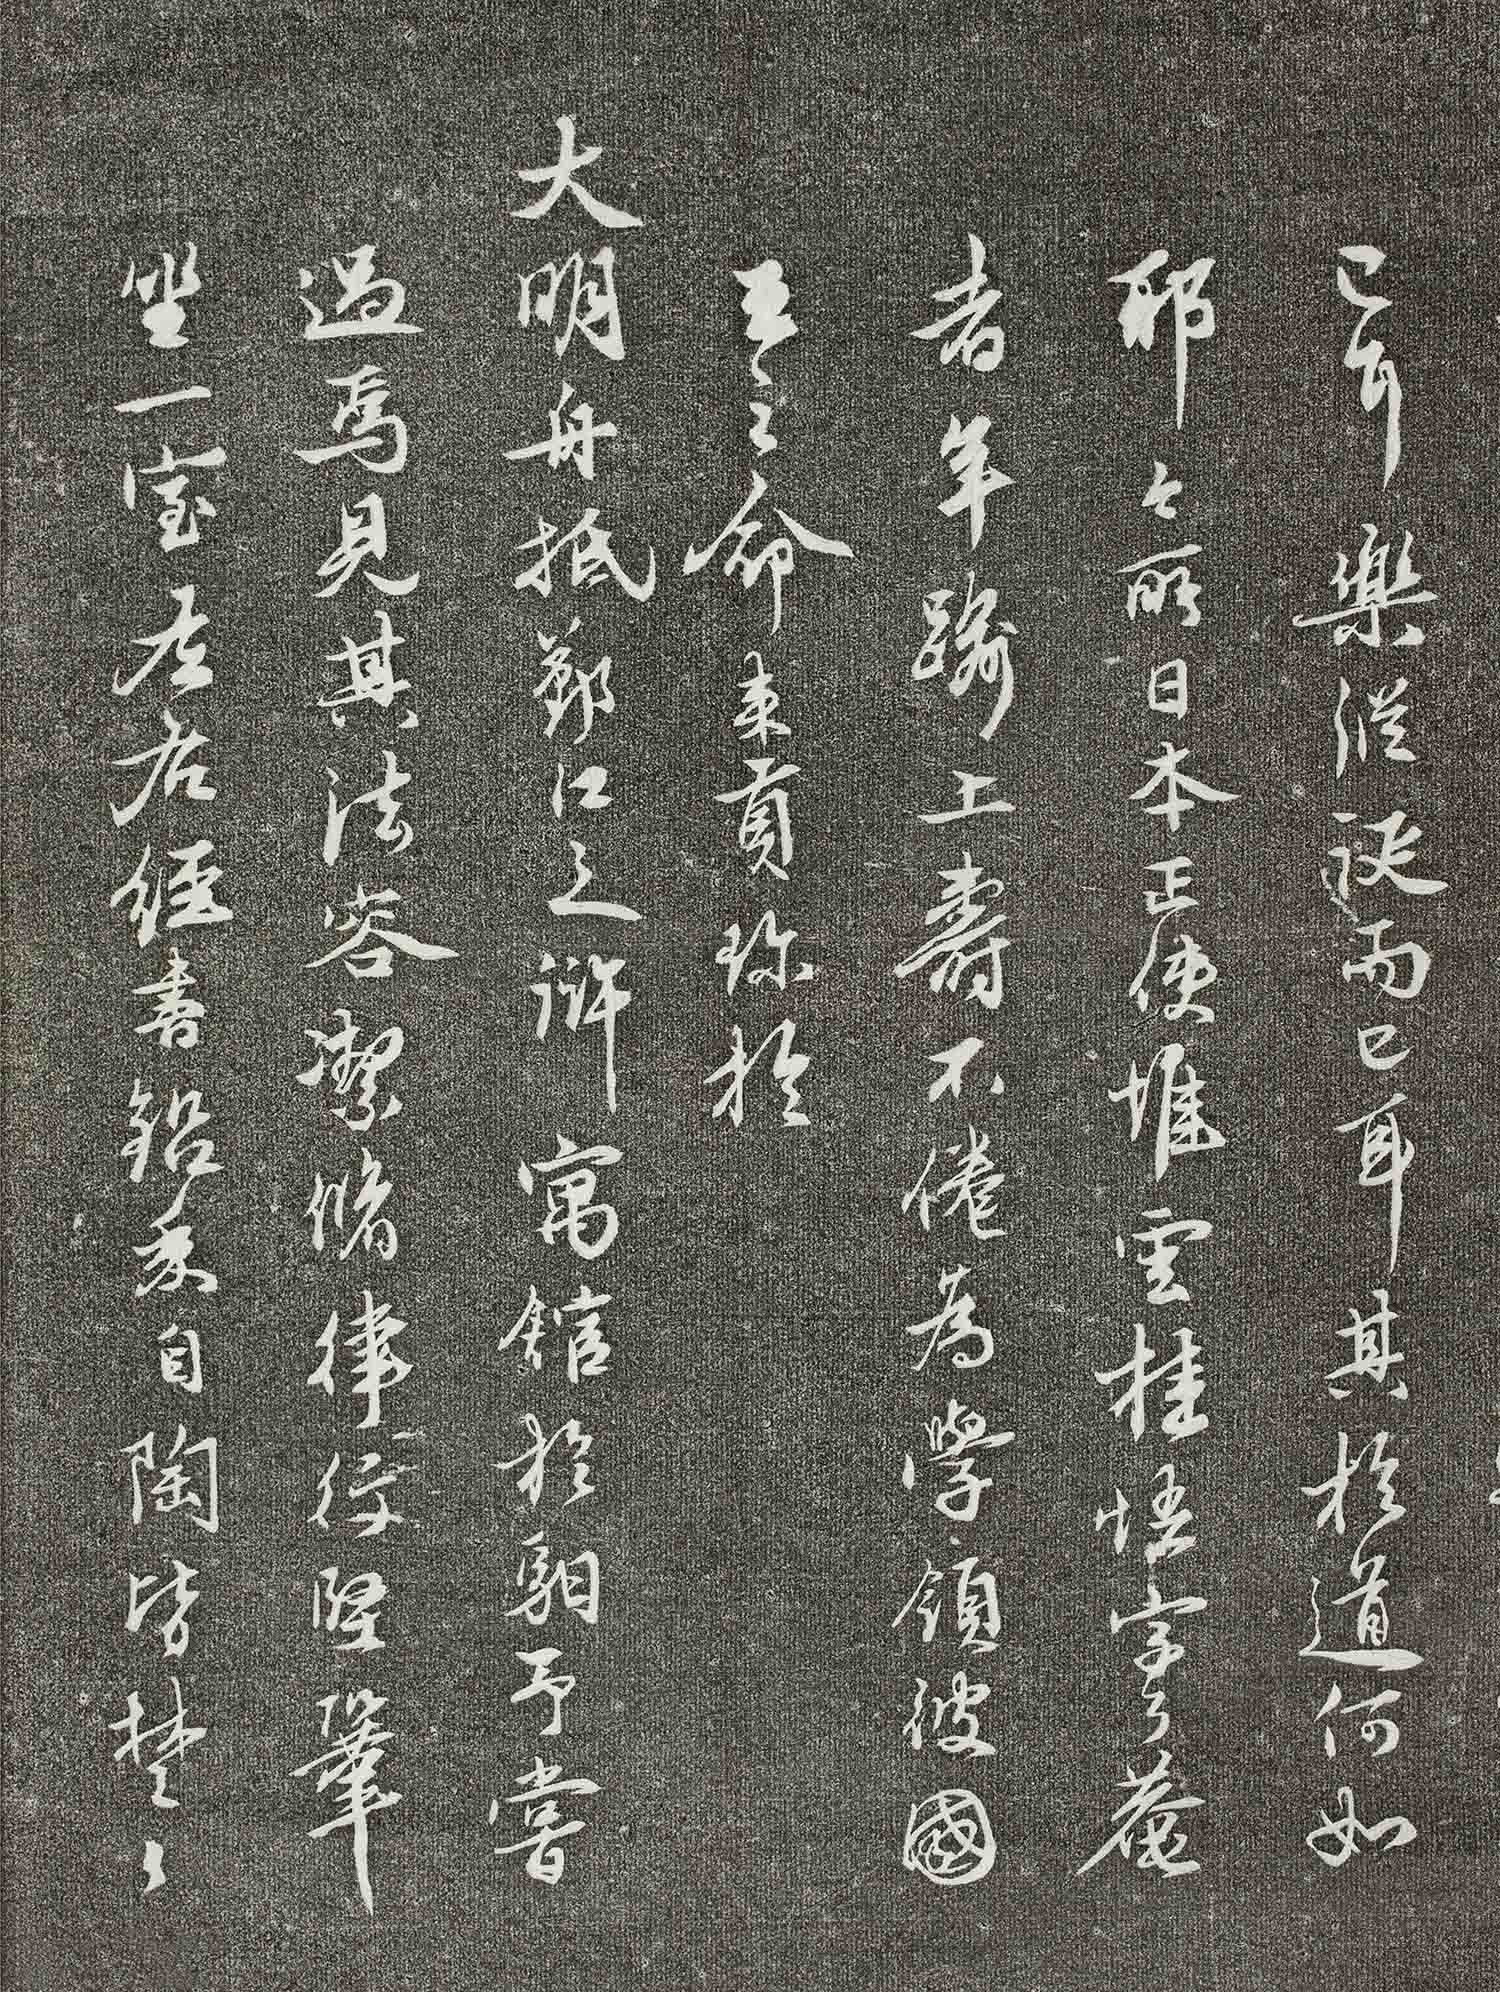 已耳樂從誕而已耳其於道何如
耶今所日本正使堆雲桂悟字了菴
者年踰上壽不倦為學領彼國
王之命来貢珎於
大明舟抵鄞江之滸寓館於馹予嘗
過焉見其法容潔脩律行堅鞏
坐一室左右經書鉛槧自陶皆楚〻